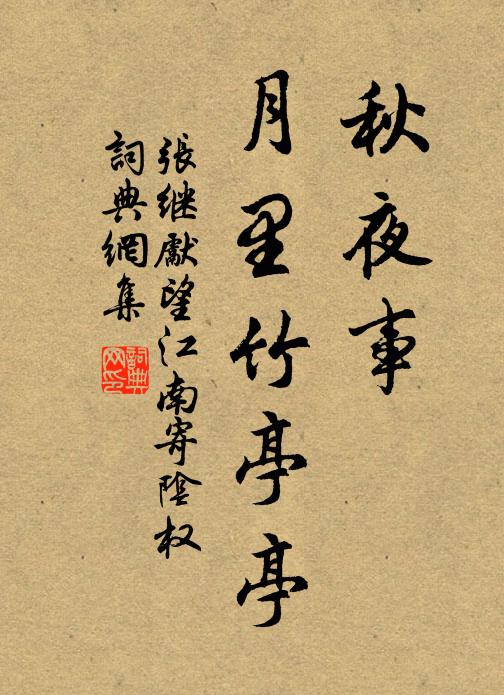 秋夜事
月里竹亭亭
張继獻望江南寄陰权
詞典網集
詞典
网印